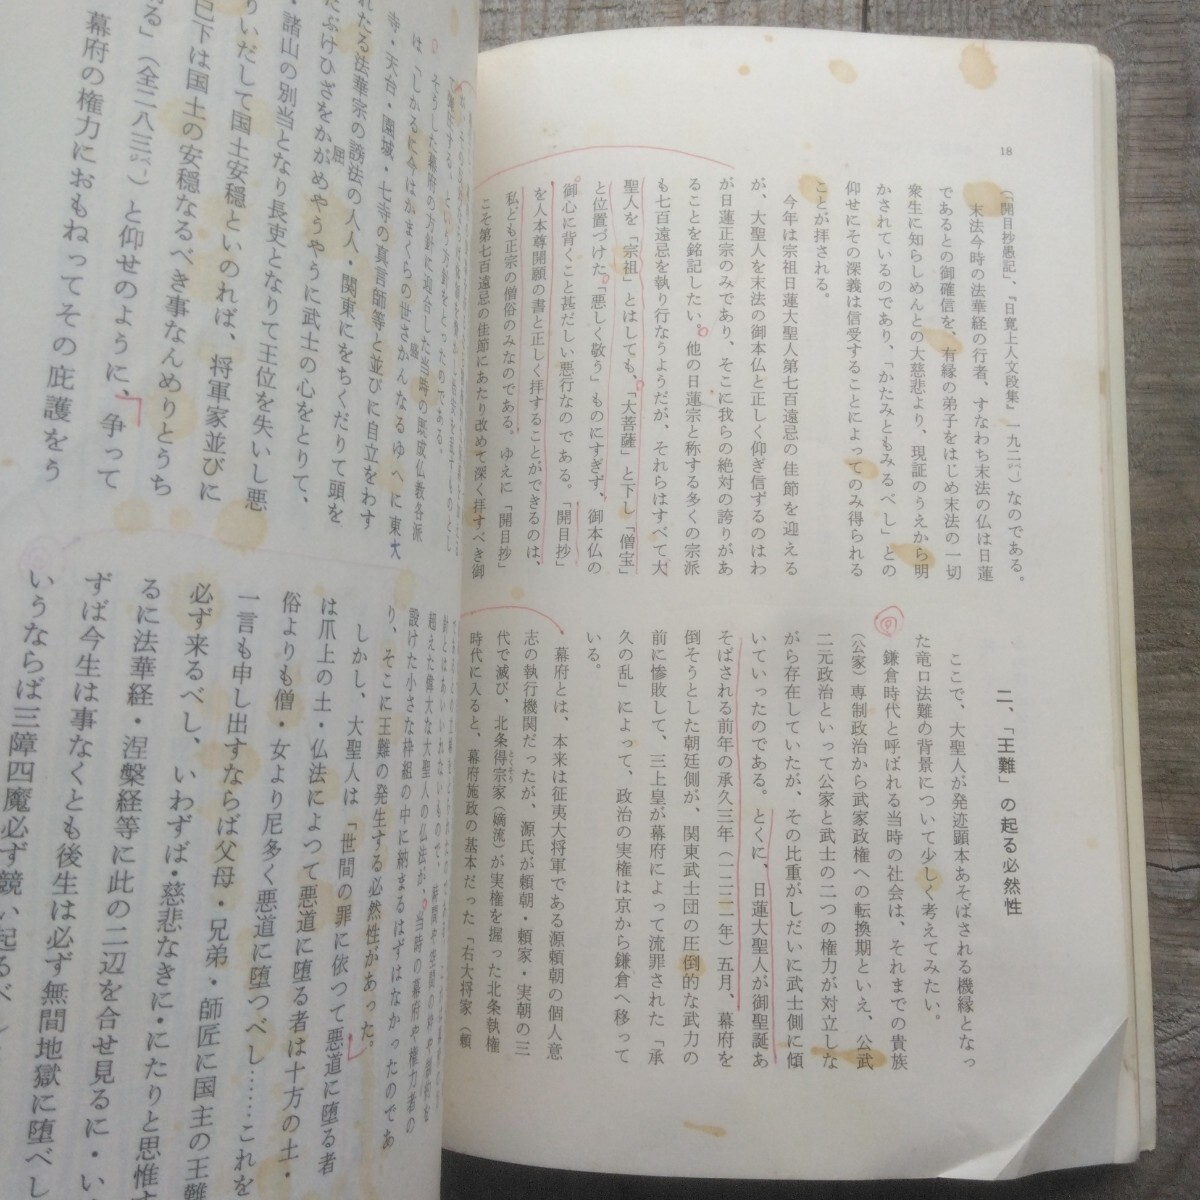 18
（「開目抄愚記」、『日寛上人文段集』一九二㌻）なのである。
末法今時の法華経の行者、すなわち末法の仏は日蓮
であるとの御確信を、有縁の弟子をはじめ末法の一切
衆生に知らしめんとの大慈悲より、現証のうえから明
かされているのであり、「かたみともみるべし」との
仰せにその深義は信受することによってのみ得られる
ことが拝される。
今年は宗祖日蓮大聖人第七百遠忌の佳節を迎える
が、大聖人を末法の御本仏と正しく仰ぎ信ずるのはわ
が日蓮正宗のみであり、そこに我らの絶対の誇りがあ
ることを銘記したい。他の日蓮宗と称する多くの宗派
も七百遠忌を執り行なうようだが、それらはすべて大
聖人を「宗祖」とはしても、「大菩薩」と下し「僧宝」
と位置づけた「悪しく敬う」ものにすぎず、御本仏の
御心に背くこと甚だしい悪行なのである。「開目抄」
を人本尊開顕の書と正しく拝することができるのは、
私ども正宗の僧俗のみなのである。ゆえに「開目抄」
こそ第七百遠忌の佳節にあたり改めて深く拝すべき御
二、「王難」の起る必然性
ここで、大聖人が発迹顕本あそばされる機縁となっ
た竜口法難の背景について少しく考えてみたい。
鎌倉時代と呼ばれる当時の社会は、それまでの貴族
（公家）専制政治から武家政権への転換期といえ、公武
二元政治といって公家と武士の二つの権力が対立しな
がら存在していたが、その比重がしだいに武士側に傾
いていったのである。とくに、日蓮大聖人が御聖誕あ
そばされる前年の承久三年（一二二一年）五月、幕府を
倒そうとした朝廷側が、関東武士団の圧倒的な武力の
前に惨敗して、三上皇が幕府によって流罪された「承
久の乱」によって、政治の実権は京から鎌倉へ移って
いる。
幕府とは、本来は征夷大将軍である源頼朝の個人意
志の執行機関だったが、源氏が頼朝・頼家・実朝の三
代で滅び、北条得宗家（嫡流）が実権を握った北条執権
時代に入ると、幕府施政の基本だった「右大将家（頼
そうした幕府の方針に迎合した当時の既成仏教各派
は「しかるに今はかまくらの世さかんなるゆへに東大
寺・天台・園城・七寺の真言師等と並びに自立をわす
れたる法華宗の謗法の人人・関東にをちくだりて頭を
たぶけひざをかがめやうやうに武士の心をとりて、
諸山の別当となり長吏となりて王位を失いし悪
りいだして国土安穏といのれば、将軍家並びに
巳下は国土の安穏なるべき事なんめりとうち
ある」（全二八三㌻）と仰せのように、争って
幕府の権力におもねってその庇護をう
超えた偉大な大聖人の仏法が、当時の幕府や権力者の
設けた小さな枠組の中に納まるはずはなかったのであ
り、そこに王難の発生する必然性があった。
しかし、大聖人は「世間の罪に依って悪道に堕る者
は爪上の土・仏法によって悪道に堕る者は十方の土・
俗よりも僧・女より尼多く悪道に堕つべし……これを
一言も申し出すならば父母・兄弟・師匠に国主の王難
必ず来るべし、いわずば・慈悲なきに・にたりと思惟す
るに法華経・涅槃経等に此の二辺を合せ見るに・い
ずば今生は事なくとも後生は必ず無間地獄に堕べし
いうならば三障四魔必ず競い起るべし